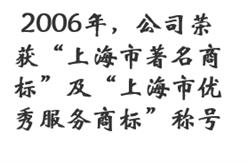 2006年，公司荣
获“上海市著名商
标”及“上海市优
秀服务商标”称号